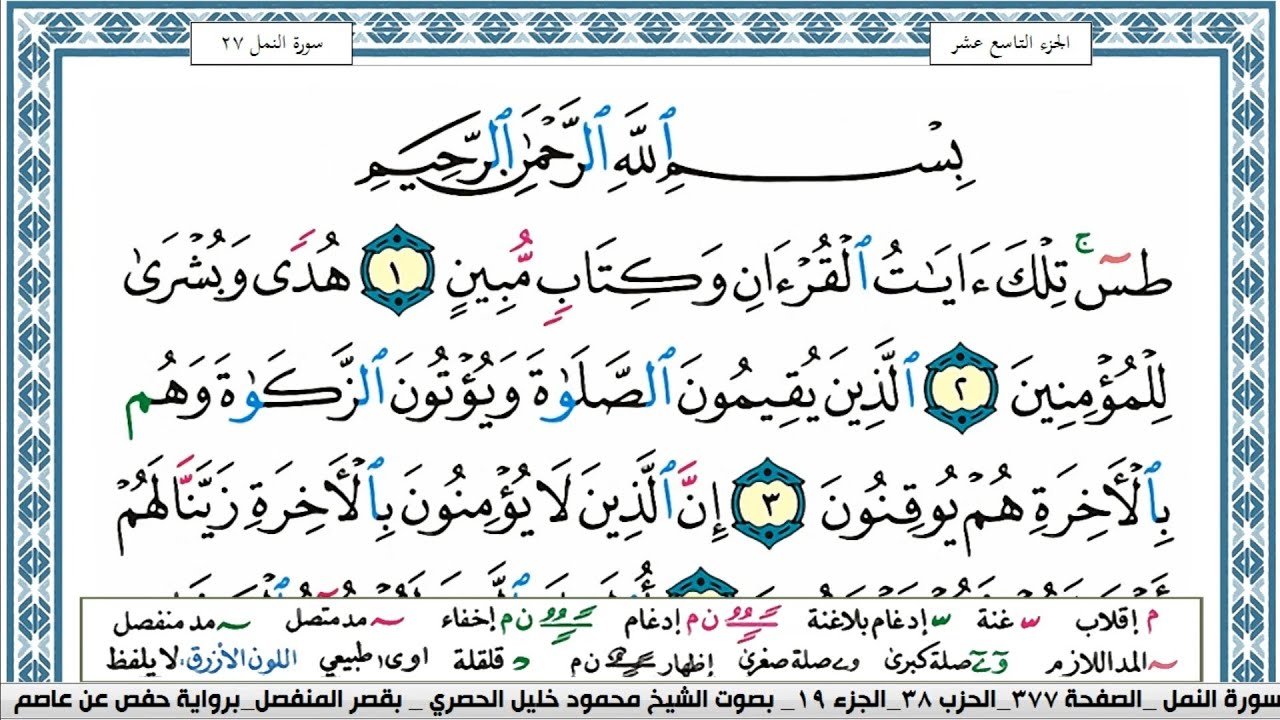 الجزء التاسع عشر
سورة النمل ٢٧
بِسْمِ ٱللَّهِ ٱلرَّحْمَٰنِ ٱلرَّحِيمِ
طسٓ ۚ تِلْكَ ءَايَٰتُ ٱلْقُرْءَانِ وَكِتَابٍ مُّبِينٍ ١ هُدًى وَبُشْرَىٰ
لِلْمُؤْمِنِينَ ٢ ٱلَّذِينَ يُقِيمُونَ ٱلصَّلَوٰةَ وَيُؤْتُونَ ٱلزَّكَوٰةَ وَهُم
بِٱلْأَخِرَةِ هُمْ يُوقِنُونَ ٣ إِنَّ ٱلَّذِينَ لَا يُؤْمِنُونَ بِٱلْأَخِرَةِ زَيَّنَّا لَهُمْ
م إقلاب س غنة س إدغام بلاغنة ن م إدغام ن م إخفاء مد متصل مد منفصل
المد اللازم صلة كبرى و ے صلة صغرى إظهار ن م د قلقلة ا و ى طبيعي اللون الأزرق، لا يلفظ
سورة النمل _الصفحة ٣٧٧_الحزب ٣٨_الجزء ١٩_ بصوت الشيخ محمود خليل الحصري _ بقصر المنفصل_برواية حفص عن عاصم